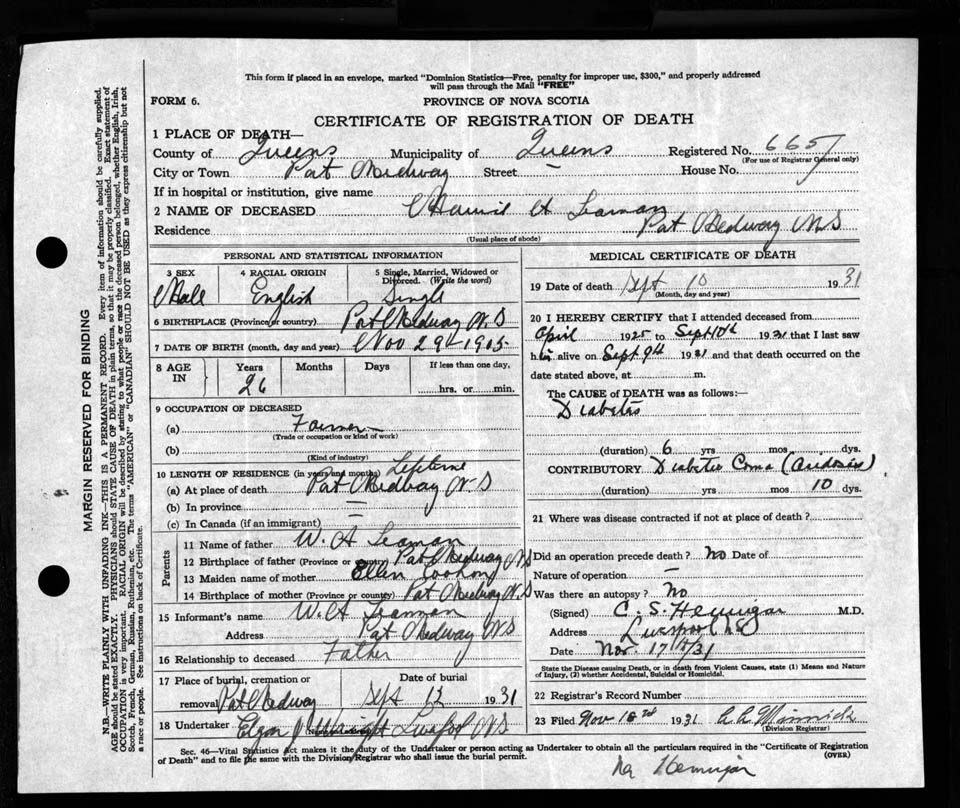 This form if placed in an envelope, marked "Dominion Statistics—Free, penalty for improper use, $300," and properly addressed
will pass through the Mail "FREE"
FORM 6.
PROVINCE OF NOVA SCOTIA
CERTIFICATE OF REGISTRATION OF DEATH
1 PLACE OF DEATH—
County of Queens Municipality of Queens Registered No. 665
(For use of Registrar General only)
City or Town Port Medway Street — House No.
If in hospital or institution, give name
2 NAME OF DECEASED A Leaman
Residence Port Medway N S
(Usual place of abode)
PERSONAL AND STATISTICAL INFORMATION
3 SEX 4 RACIAL ORIGIN 5 Single, Married, Widowed or Divorced. (Write the word)
Male English Single
6 BIRTHPLACE (Province or country) Port Medway N. S
7 DATE OF BIRTH (month, day and year) Nov 29-1905
8 AGE IN Years Months Days If less than one day,
26 hrs. or min.
9 OCCUPATION OF DECEASED
(a) Farmer
(Trade or occupation or kind of work)
(b)
(Kind of industry)
10 LENGTH OF RESIDENCE (in years and months) Lifetime
(a) At place of death Port Medway N. S
(b) In province —
(c) In Canada (if an immigrant)
Parents
11 Name of father W. A Leaman
12 Birthplace of father (Province or country) Port Medway N S
13 Maiden name of mother Ellen
14 Birthplace of mother (Province or country) Port Medway N. S
15 Informant's name W. A Leaman
Address Port Medway N S
16 Relationship to deceased Father
17 Place of burial, cremation or Date of burial
removal Port Medway Sept 12 1931
18 Undertaker N S
MEDICAL CERTIFICATE OF DEATH
19 Date of death Sept 10 1931
(Month, day and year)
20 I HEREBY CERTIFY that I attended deceased from
April 1925 to Sept 10th 1931 that I last saw
him alive on Sept 9th 1931 and that death occurred on the
date stated above, at m.
The CAUSE of DEATH was as follows:—
Diabetes
(duration) 6 yrs mos dys.
CONTRIBUTORY Diabetic Coma (Acidosis)
(duration) yrs mos 10 dys.
21 Where was disease contracted if not at place of death?
Did an operation precede death? No Date of
Nature of operation —
Was there an autopsy? No
(Signed) C. S. Hennigar M.D.
Address Liverpool NS
Date Nov. 17/31
State the Disease causing Death, or in death from Violent Causes, state (1) Means and Nature
of Injury, (2) whether Accidental, Suicidal or Homicidal.
22 Registrar's Record Number
23 Filed Nov 18 1931
(Division Registrar)
Sec. 46—Vital Statistics Act makes it the duty of the Undertaker or person acting as Undertaker to obtain all the particulars required in the "Certificate of Registration
of Death" and to file the same with the Division Registrar who shall issue the burial permit. (OVER)
Hennigar
MARGIN RESERVED FOR BINDING
N.B.—WRITE PLAINLY WITH UNFADING INK—THIS IS A PERMANENT RECORD. Every item of information should be carefully supplied.
AGE should be stated EXACTLY. PHYSICIANS should STATE CAUSE OF DEATH in plain terms, so that it may be properly classified. Exact statement of
OCCUPATION is very important. RACIAL ORIGIN will be described by stating to what people or race the deceased person belonged, whether English, Irish,
Scotch, French, German, Russian, Ruthenian, etc. The terms "AMERICAN" or "CANADIAN" SHOULD NOT BE USED as they express citizenship but not
a race or people. See instructions on back of Certificate.